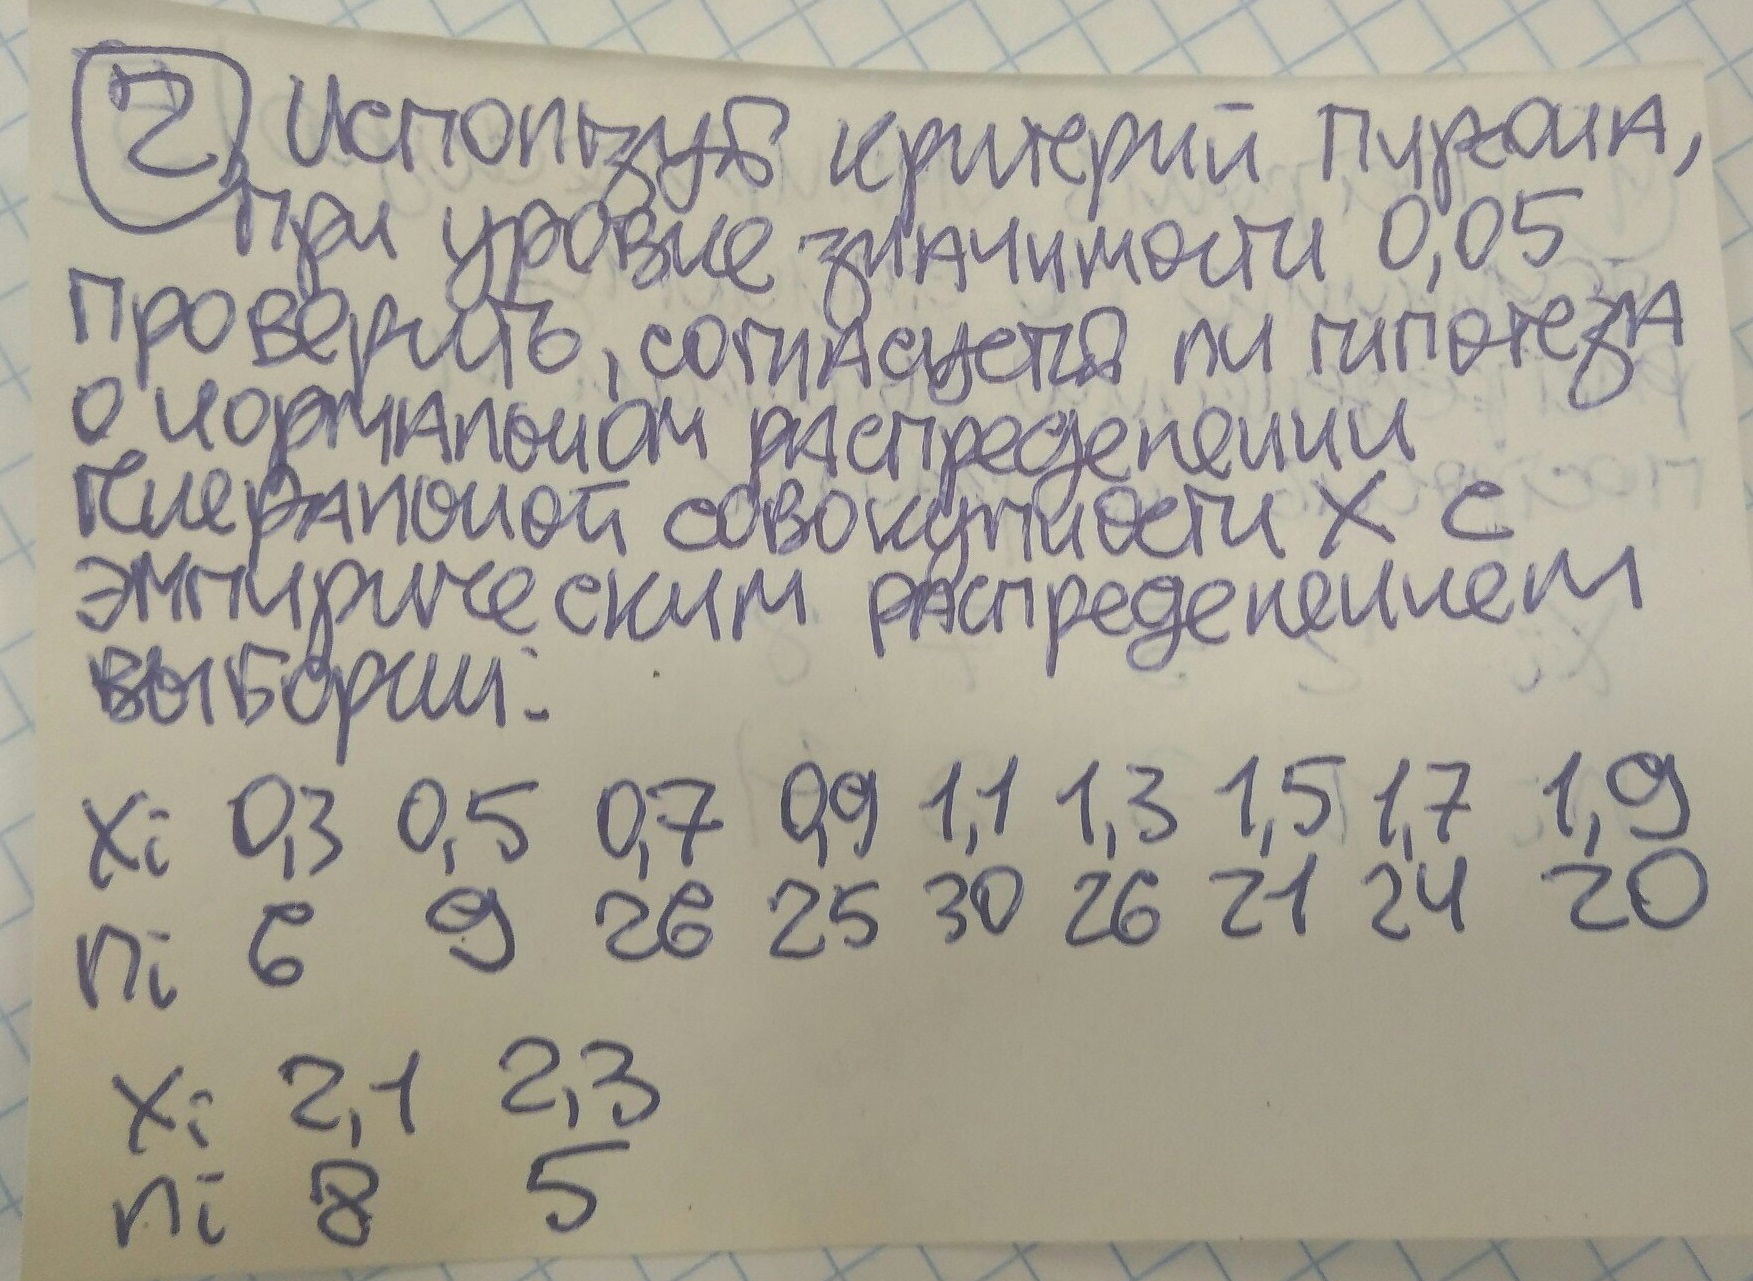 2, Используя критерий Пирсона,
при уровне значимости 0,05
проверить, согласуется ли гипотеза
о нормальном распределении
генеральной совокупности X с
эмпирическим распределением
выборки:
xi 0,3 0,5 0,7 0,9 1,1 1,3 1,5 1,7 1,9
ni 6 9 26 25 30 26 21 24 20
xi 2,1 2,3
ni 8 5